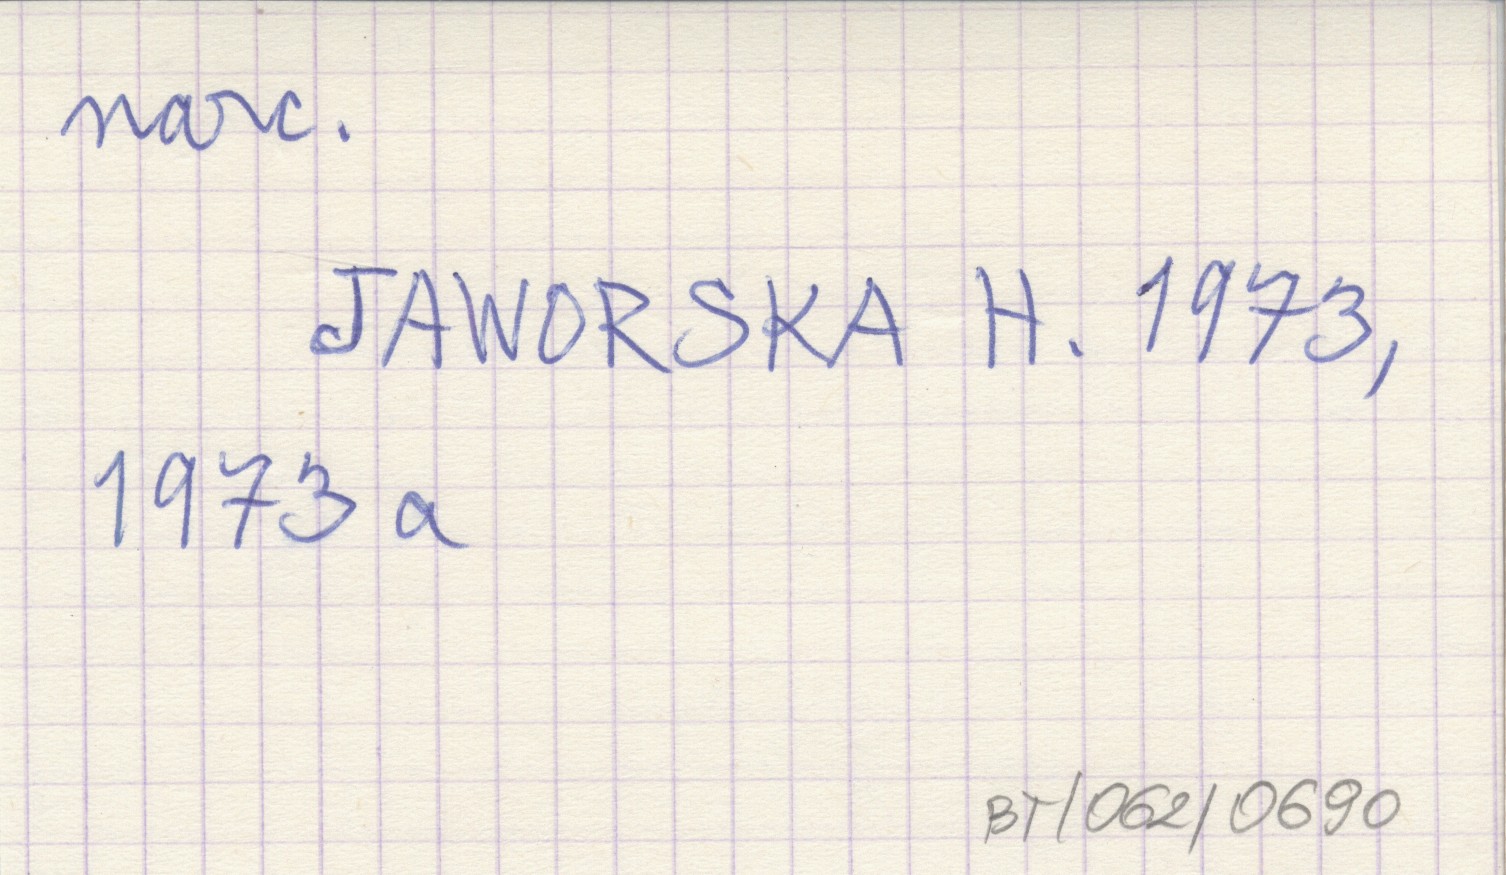 narc.
JAWORSKA H. 1973,
1973 a
BT/062/0690